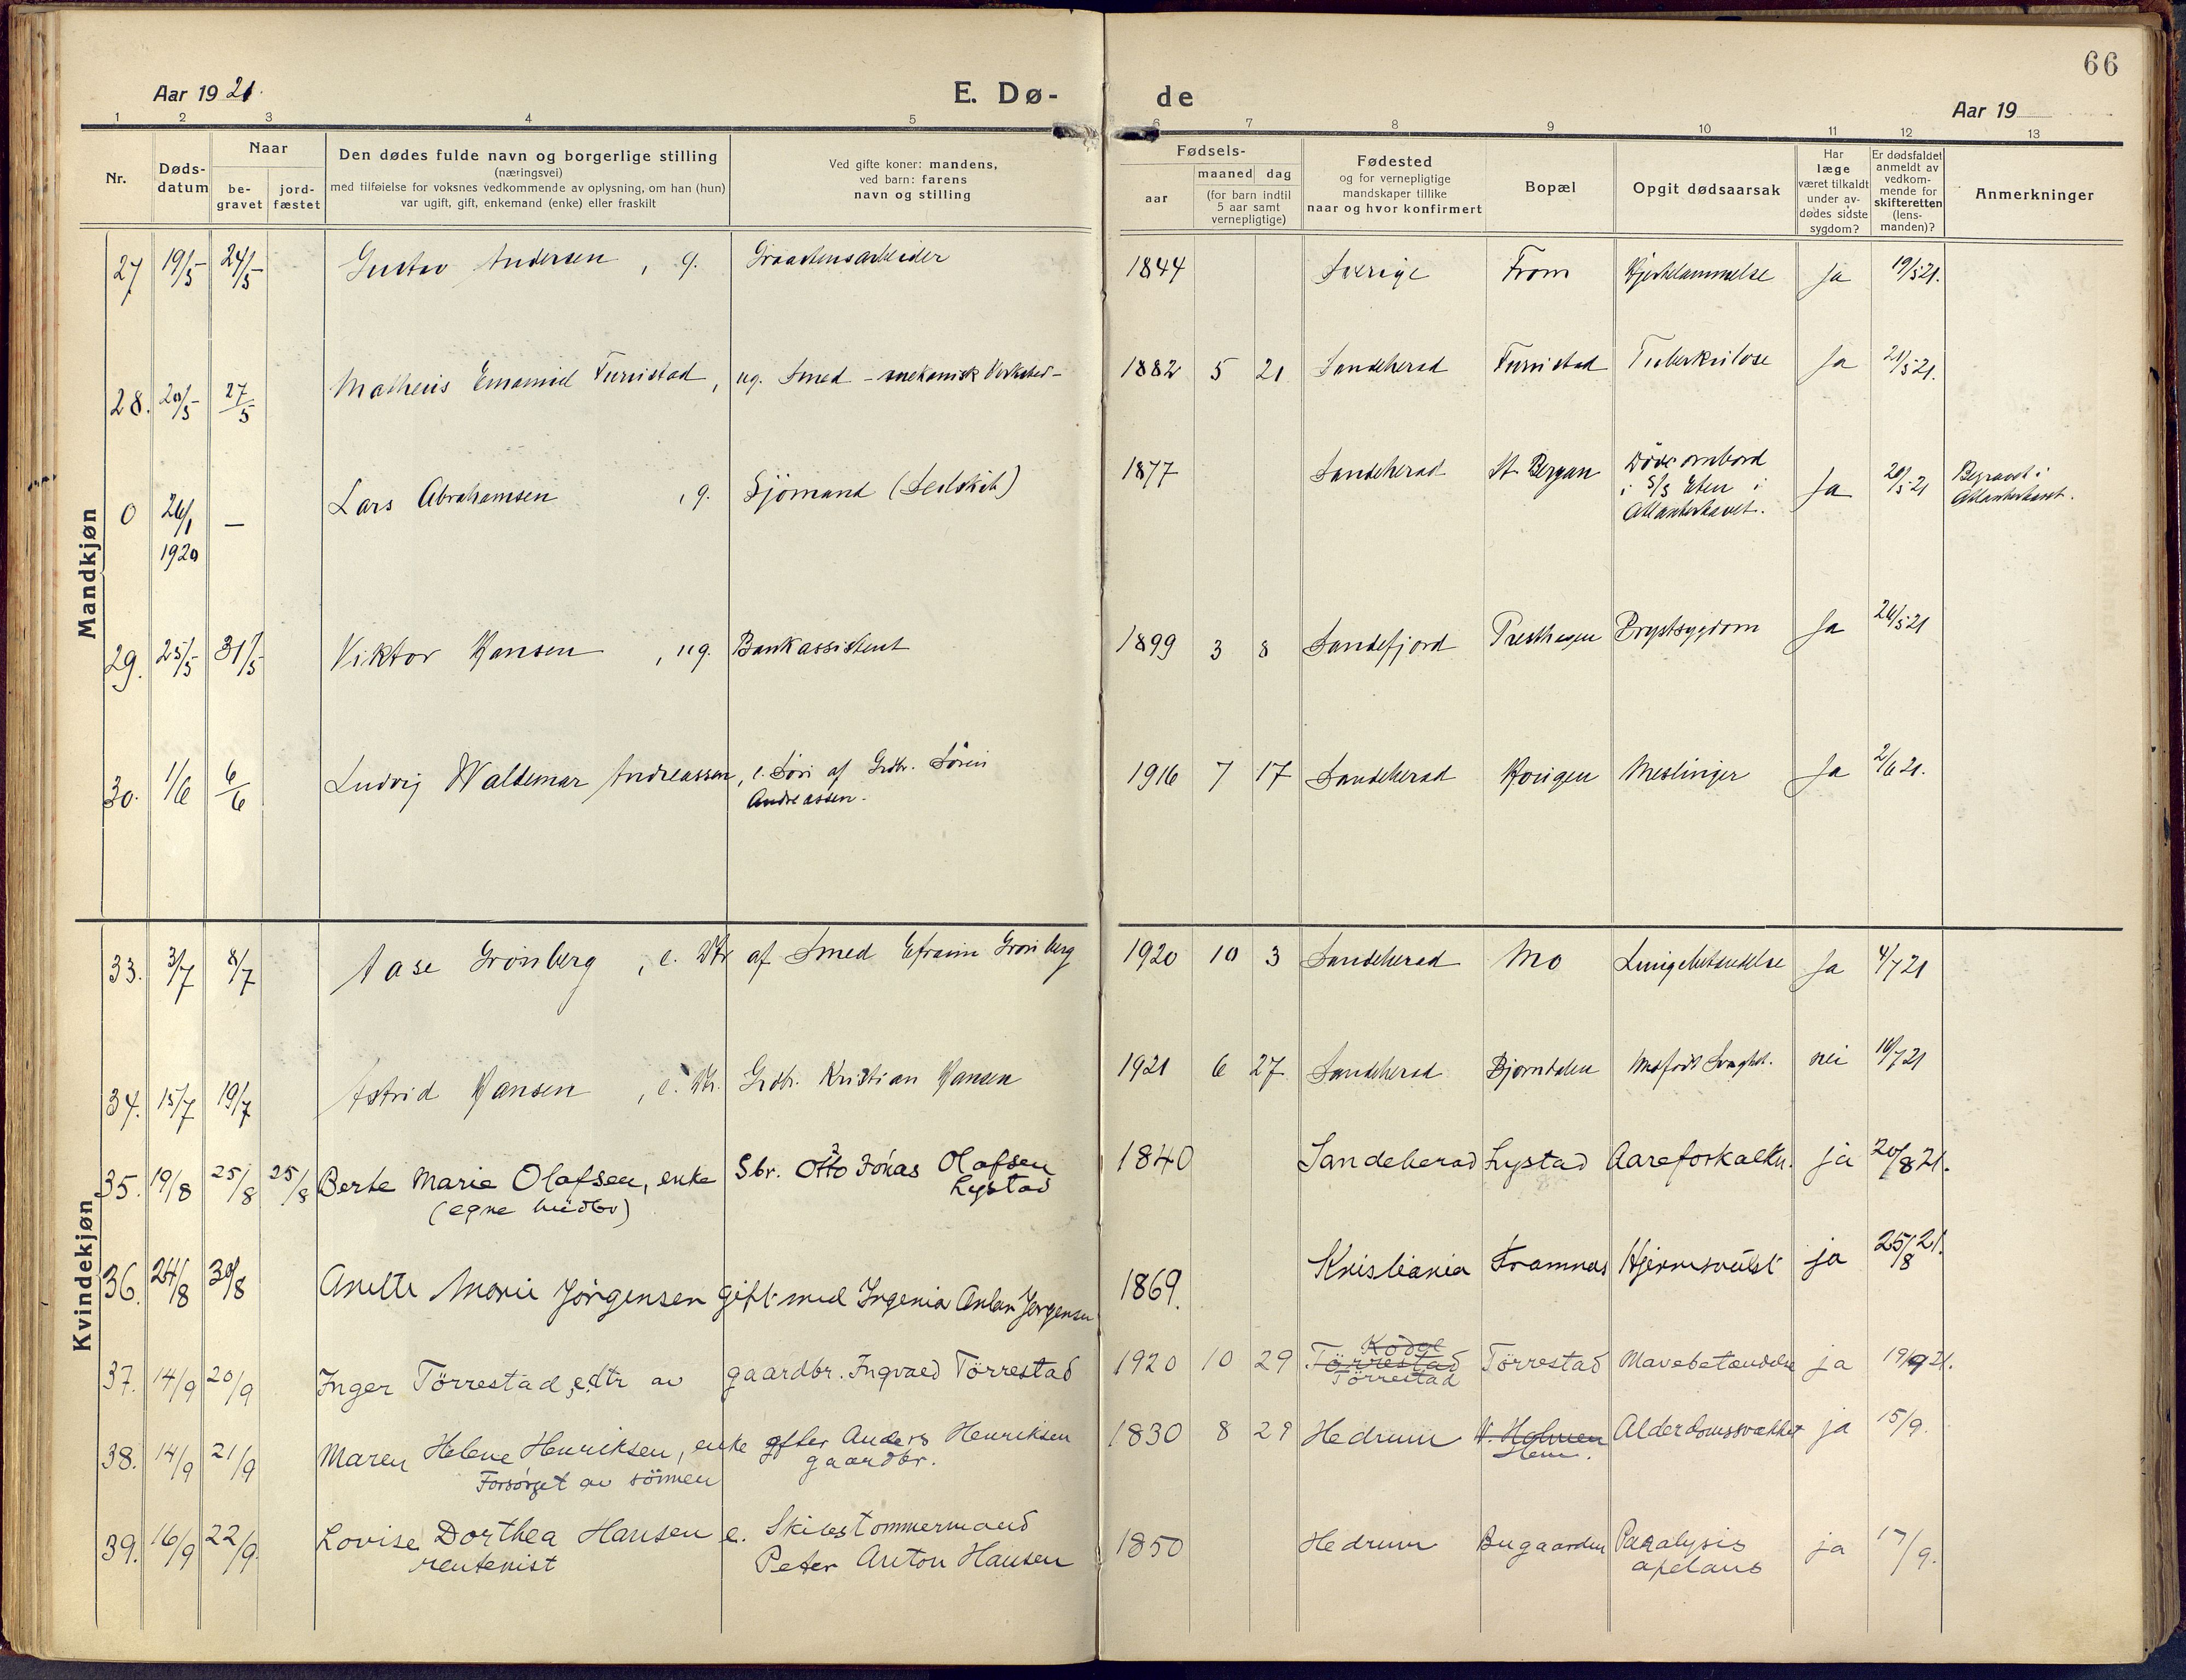 66
Aar 1921.
E. Dø-
de
Aar 19
1 2 3 4 5 6 7 8 9 10 11 12 13
Nr.
Døds-
datum
Naar
be-
gravet
jord-
fæstet
Den dødes fulde navn og borgerlige stilling
(næringsvei)
med tilføielse for voksnes vedkommende av oplysning, om han (hun)
var ugift, gift, enkemand (enke) eller fraskilt
Ved gifte koner: mandens,
ved barn: farens
navn og stilling
Fødsels-
aar
maaned dag
(for barn indtil
5 aar samt
vernepligtige)
Fødested
og for vernepligtige
mandskaper tillike
naar og hvor konfirmert
Bopæl
Opgit dødsaarsak
Har
læge
været tilkaldt
under av-
dødes sidste
sygdom?
Er dødsfaldet
anmeldt av
vedkom-
mende for
skifteretten
(lens-
manden)?
Anmerkninger
Mandkjøn
27 19/5 24/5 Gustav Andersen, g. Graastensarbeider 1844 Sverige From Hjertelammelse Ja 19/5 21.
28. 20/5 27/5 Matheus Emanuel Furustad, ug. Smed - mekanisk Verksted - 1882 5 21 Sandeherad Furustad Tuberkulose Ja 21/5 21.
0 26/1 1920 — Lars Abrahamsen, g. Sjömand 1877 Sandeherad St. Bergan Döde ombord
i S/S Eten i
Atlanterhavet. Ja 20/5 21 Begravet i
Atlanterhavet.
29. 25/5 31/5 Viktor Hansen, ug. Bankassistent 1899 3 8 Sandefjord Presthagen Brystsygdom Ja 26/5 21
30. 1/6 6/6 Ludvig Waldemar Andreassen, e. Sön af Grdbr. Sören
Andreassen. 1916 7 17 Sandeherad Haugen Meslinger Ja 2/6 21.
Kvindekjøn
33. 3/7 8/7 Aase Grönberg, e. Dtr af Smed Efraim Grönberg 1920 10 3 Sandeherad Mo Lungebetendelse Ja 4/7 21
34. 15/7 19/7 Astrid Hansen, e. Dtr. Grdbr. Kristian Hansen 1921 6 27 Sandeherad Bjørndalen Medfødt Svaghet. nei 16/7 21
35. 19/8 25/8 25/8 Berte Marie Olafsen, enke Sbr. Otto Jonas Olafsen
(egne midler) Lystad 1840 Sandeherad Lystad Aareforkalkn. ja 20/8 21.
36. 24/8 30/8 Anette Marie Jörgensen gift med Ingeniør Anton Jörgensen 1869. Kristiania Framnæs Hjernesvulst ja 25/8 21.
37. 14/9 20/9 Inger Törrestad, e. dtr av gaardbr. Ingvald Törrestad 1920 10 29 Kodal
Törrestad
Törrestad Törrestad Mavebetændelse ja 19/9 21.
38. 14/9 21/9 Maren Helene Henriksen, enke efter Anders Henriksen
Forsörget av sönnen gaardbr. 1830 8 29 Hedrum V. Holmen
Hem. Alderdomssvakhet ja 15/9.
39. 16/9 22/9. Lovise Dorthea Hansen e. Skibstømmermand
rentenist Peter Anton Hansen 1850 Hedrum Bugaarden Paralysis
agelans ja 17/9.